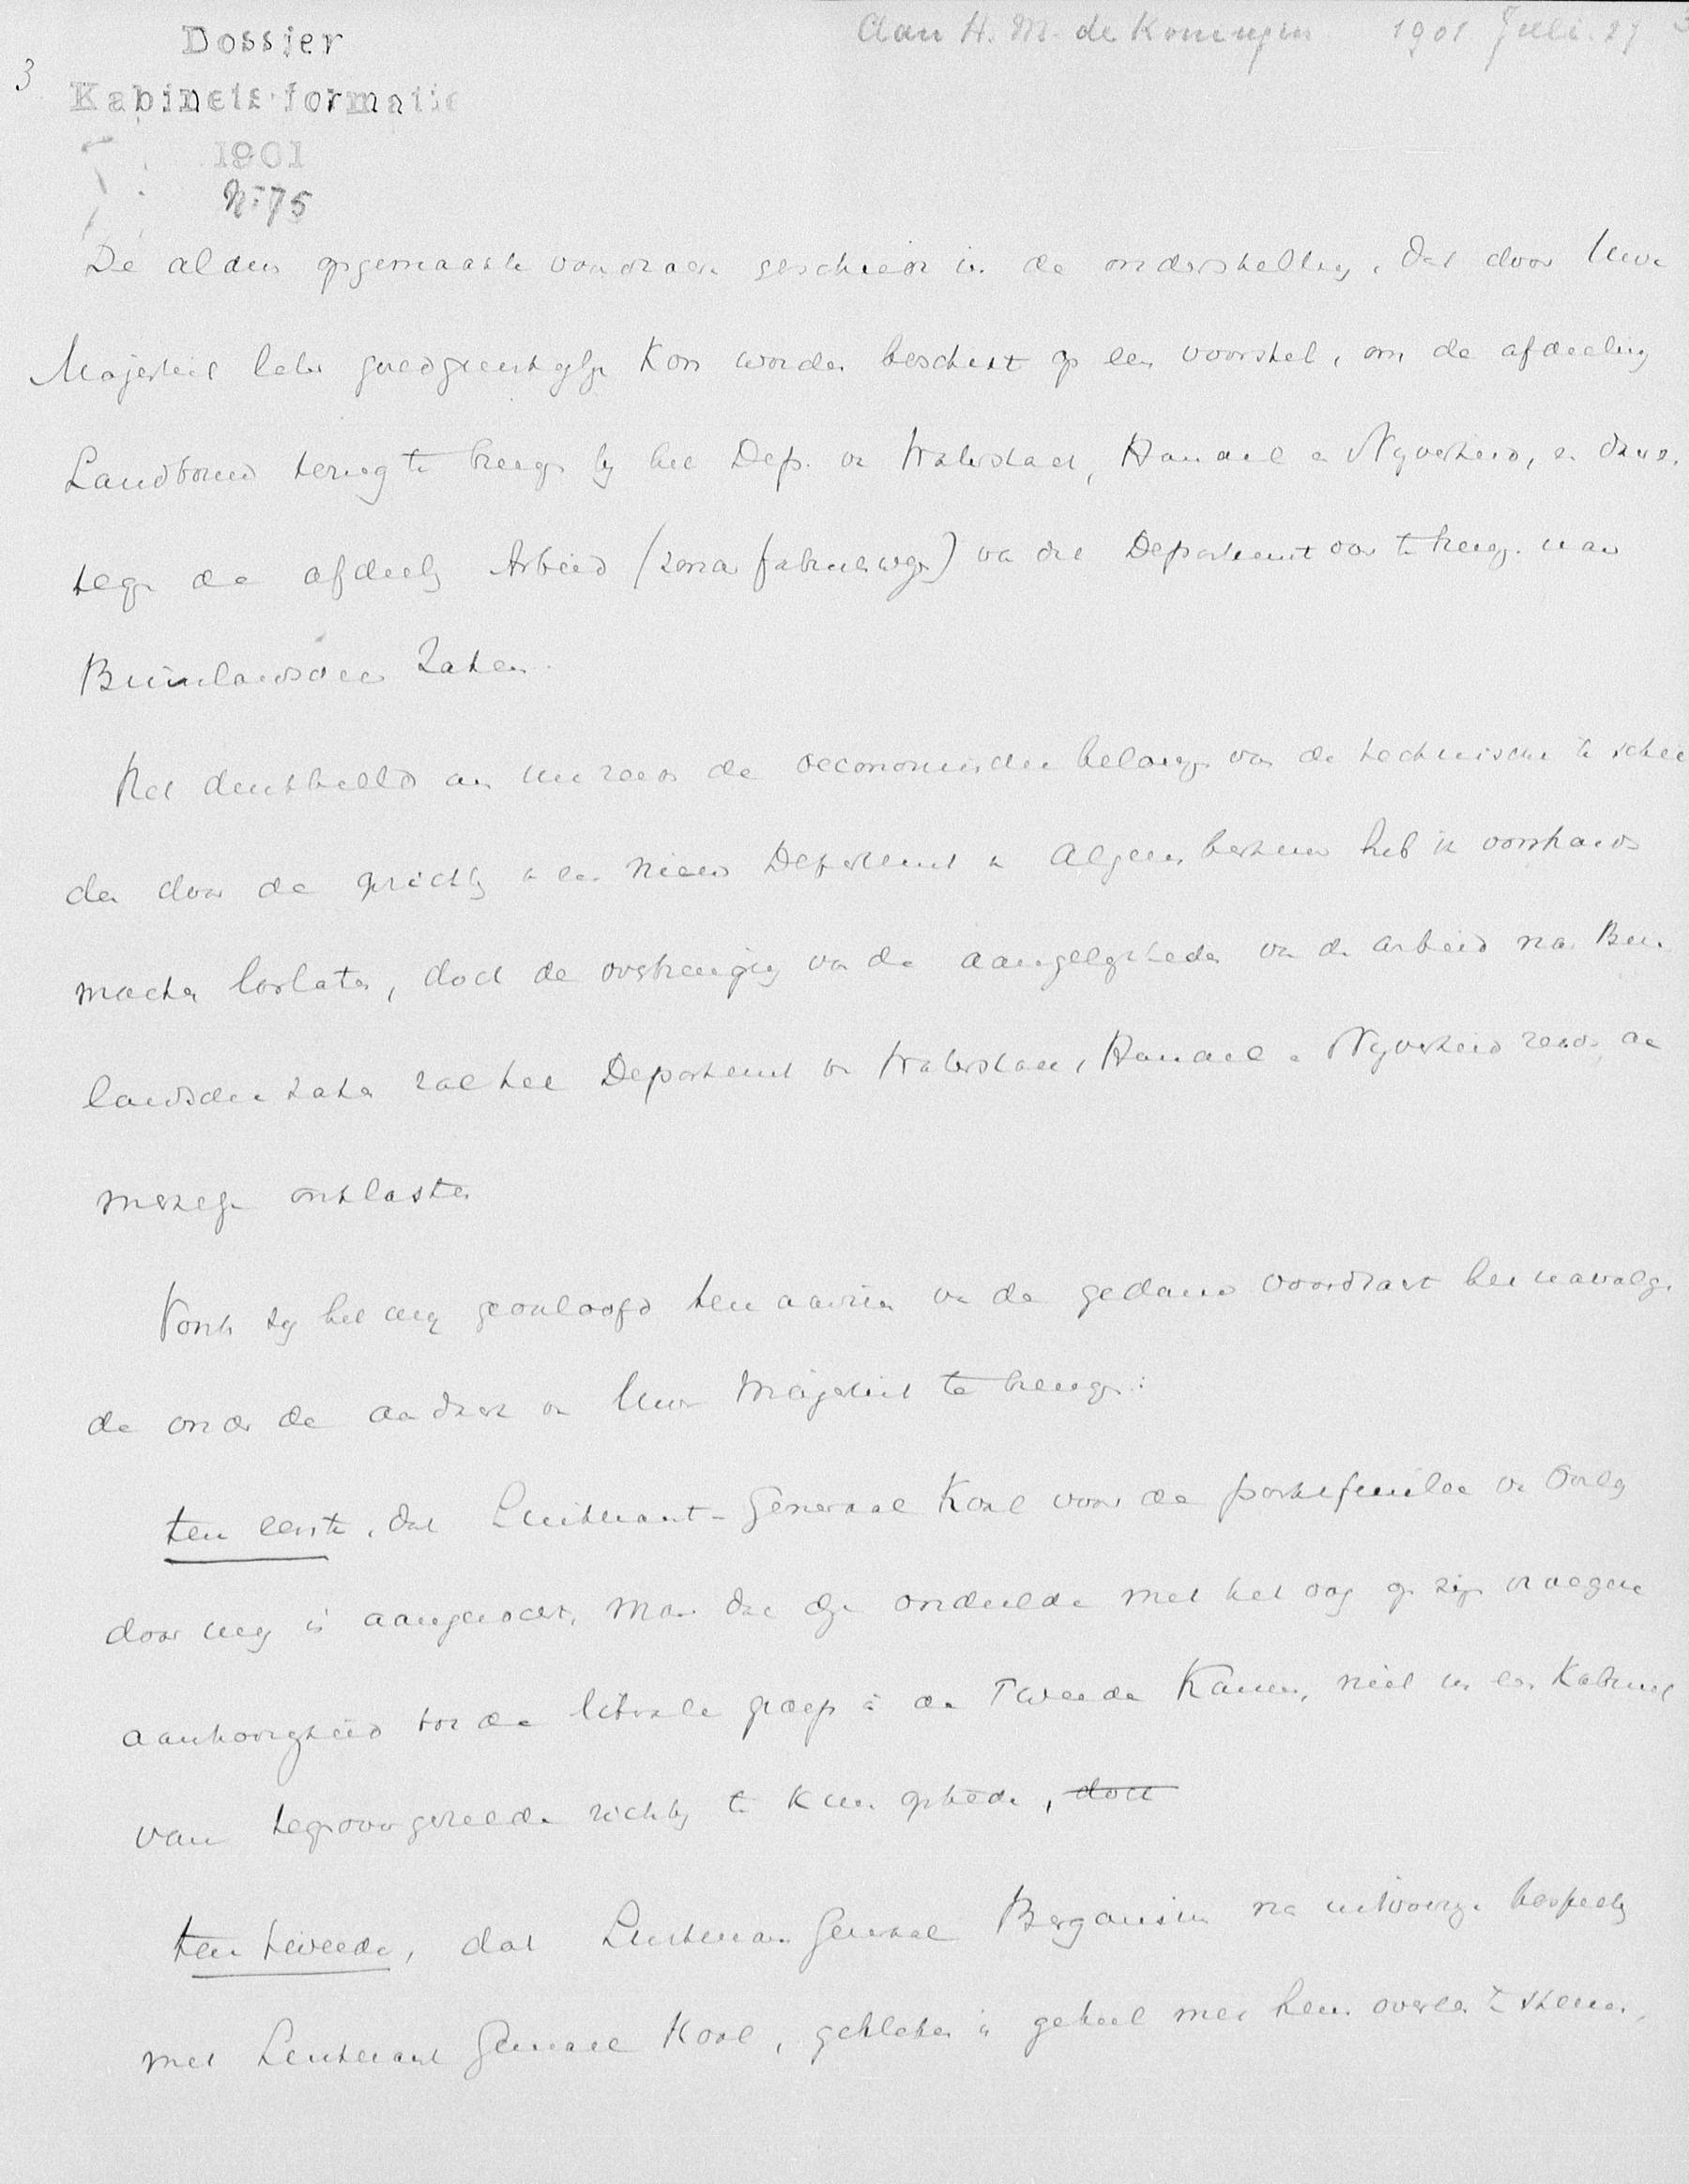 Aan H. M. de Koningin 1901 Juli 27
3
Dossier
Kabinets-formatie
3
1901
No 75
De aldus opgemaakte voordracht geschiedt in de onderstelling, dat door Uwe
Majesteit later goedgunstiglijk kon worden beschikt op een voorstel, om de afdeeling
Landbouw terug te brengen bij het Dep. van Waterstaat, Handel en Nijverheid, en
tegen de afdeeling Arbeid van dit Departement over te brengen naar
Binnenlandsche Zaken.
Het denkbeeld om de oeconomische belangen van de technische te schei
den door de oprichting van een nieuw Departement van Algemeen bestuur heb ik voorshands
moeten loslaten, doch de overbrenging van de aangelegenheden van den arbeid naar Bin
landsche Zaken zal het Departement van Waterstaat, Handel en Nijverheid reeds aan
merkelijk ontlasten
Voorts zij het mij geoorloofd ten aanzien van de gedane voordracht het navolgen
de onder de aandacht van Uwe Majesteit te brengen:
ten eerste, dat Luitenant-Generaal Kool voor de portefeuille van Oorlog
door mij is aangezocht, maar dat deze oordeelde met het oog op zijn vroegere
aanhoorigheid tot de liberale groep in de Tweede Kamer, niet in een Kabinet
van tegenovergestelde richting te kunnen optreden, doch
ten tweede, dat Luitenant Generaal Bergansius na uitvoerige bespreking
met Luitenant Generaal Kool, gebleken is geheel met hem overeen te stemmen,